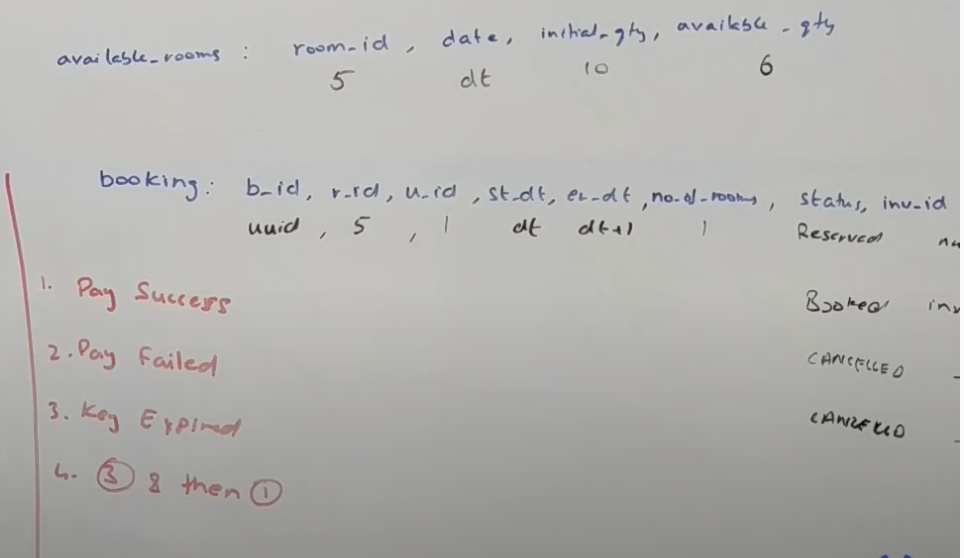 available_rooms : room_id , date, initial_qty, available_qty
5 dt 10 6
booking: b_id, r_id, u_id, st_dt, en_dt, no_of_rooms, status, inv_id
uuid , 5 , 1 dt dt+1 1 Reserved
1. Pay Success Booked inv
2. Pay Failed CANCELLED -
3. Key Expired CANCELLED -
4. ③ & then ①